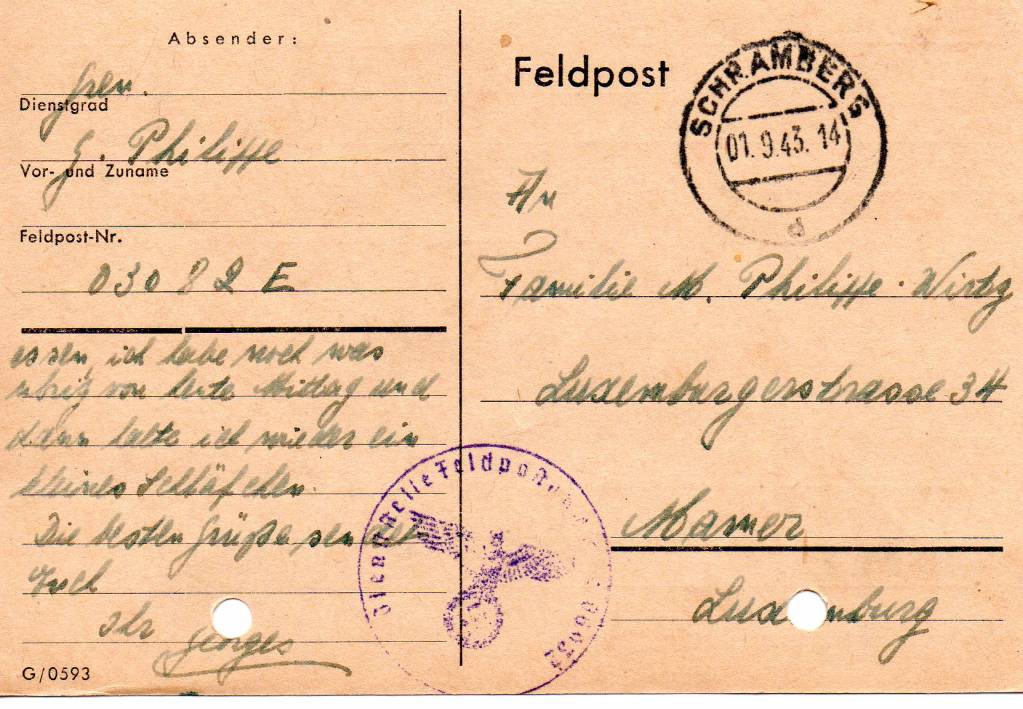 Absender:
Gren.
Dienstgrad
G. Philippe
Vor- und Zuname
Feldpost-Nr.
03082 E
essen, ich habe noch was
übrig von heute Mittag und
dann halte ich wieder ein
kleines Schläfchen.
Die besten Grüße sendet
Euch
Georges
G/0593
Feldpost
SCHRAMBERG
01.9.43.14
d
An
Familie M. Philippe-Wirtz
Luxemburgerstrasse 34
Mamer
Luxemburg
Dienststelle Feldpost